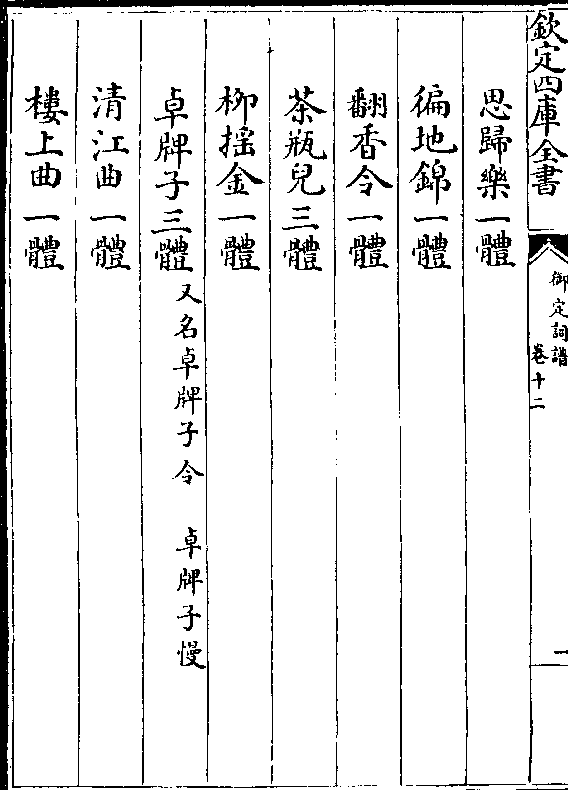 欽定四庫全書
御定詞譜
卷十二
一
思歸樂一體
徧地錦一體
翻香令一體
茶瓶兒三體
柳搖金一體
卓牌子三體 又名卓牌子令 卓牌子慢
清江曲一體
樓上曲一體